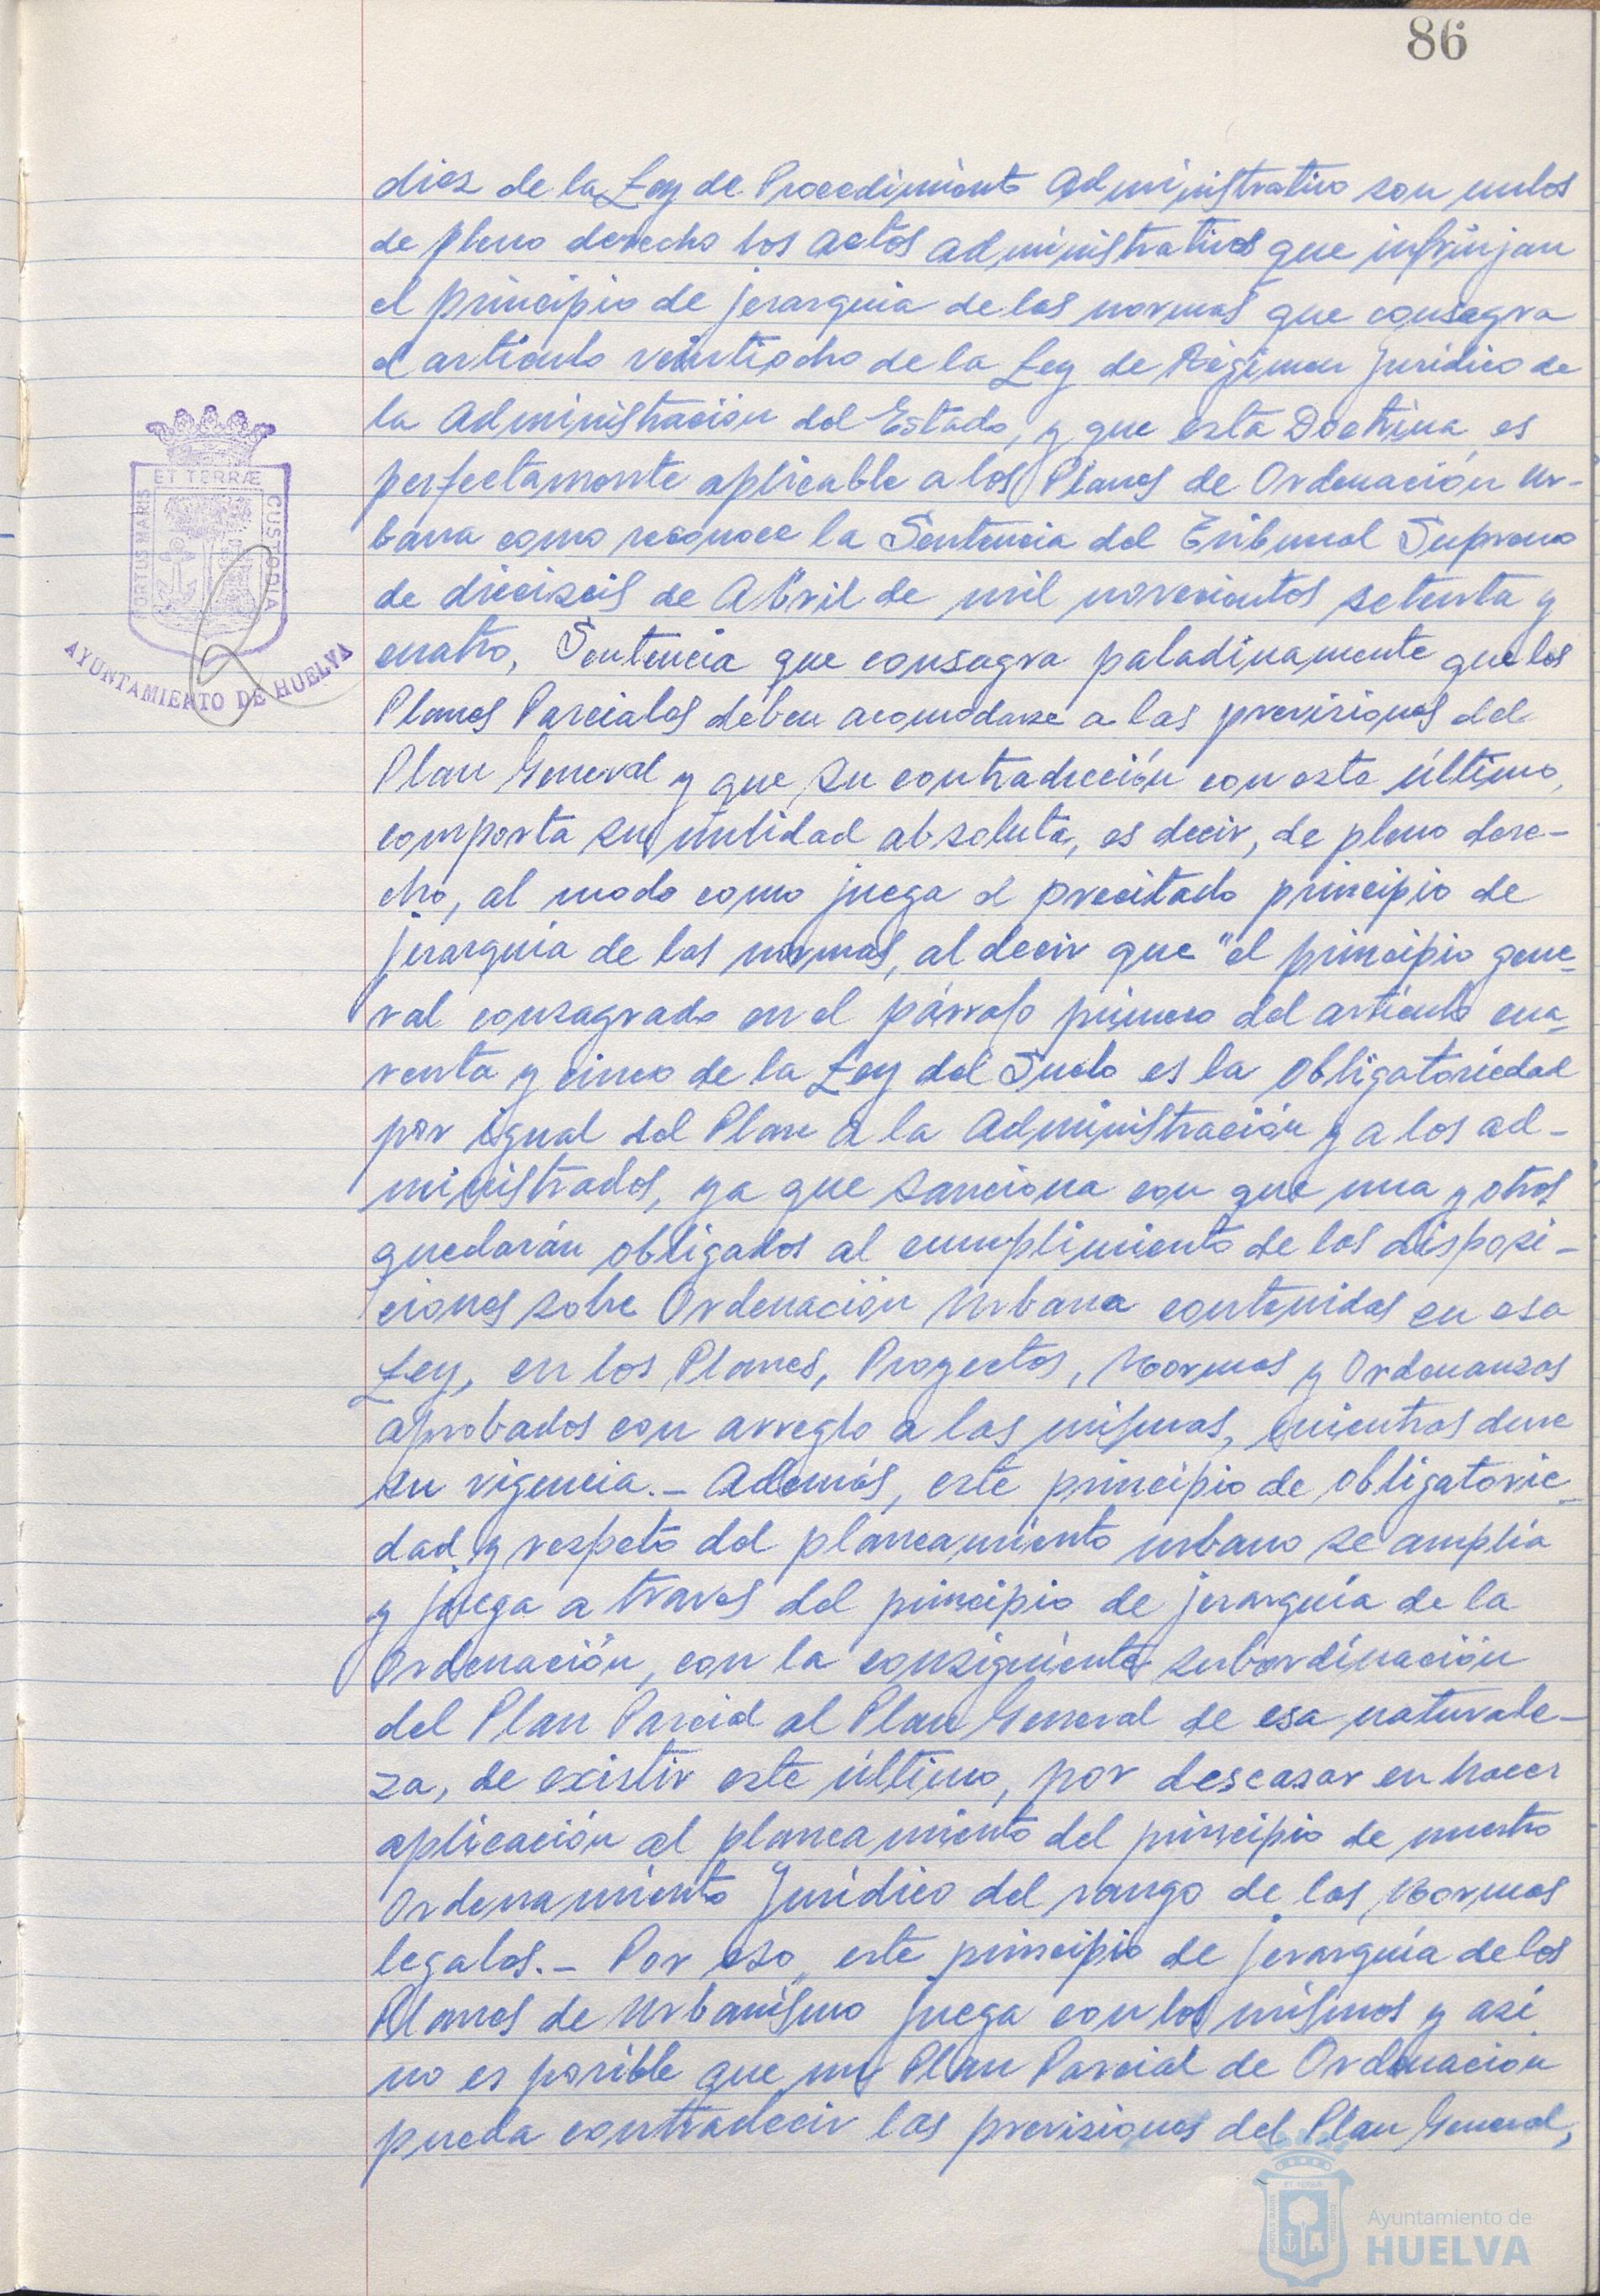 86
diez de la Ley de Procedimiento Administrativo son nulos
de pleno derecho los actos administrativos que infrinjan
el principio de jerarquia de las normas que consagra
el artículo veintiocho de la Ley de Régimen Jurídico de
la Administración del Estado, y que esta Doctrina es
perfectamente aplicable a los Planes de Ordenación Ur-
bana como reconoce la Sentencia del Tribunal Supremo
de dieciseis de Abril de mil novecientos setenta y
cuatro, Sentencia que consagra paladinamente que los
Planes Parciales deben acomodarse a las previsiones del
Plan General y que su contradicción con este último,
comporta su nulidad absoluta, es decir, de pleno dere-
cho, al modo como juega el precitado principio de
jerarquia de las normas, al decir que "el principio gene-
ral consagrado en el párrafo primero del artículo cua-
renta y cinco de la Ley del Suelo es la obligatoriedad
por igual del Plan a la Administración y a los ad-
ministrados, ya que sanciona con que una y otros
quedarán obligados al cumplimiento de las disposi-
ciones sobre Ordenación Urbana contenidas en esa
Ley, en los Planes, Proyectos, Normas y Ordenanzas
aprobados con arreglo a las mismas, mientras dure
su vigencia.- Además, este principio de obligatorie-
dad y respeto del planeamiento urbano se amplía
y juega a traves del principio de jerarquía de la
Ordenación, con la consiguiente subordinación
del Plan Parcial al Plan General de esa naturale-
za, de existir este último, por descasar en hacer
aplicación al planeamiento del principio de nuestro
Ordenamiento Jurídico del rango de las Normas
legales.- Por eso, este principio de jerarquía de los
Planes de Urbanismo juega con los mismos y asi
no es posible que un Plan Parcial de Ordenación
pueda contradecir las previsiones del Plan General,
PORTUS MARIS
ET TERRÆ
CUSTODIA
AYUNTAMIENTO DE HUELVA
Ayuntamiento de
HUELVA